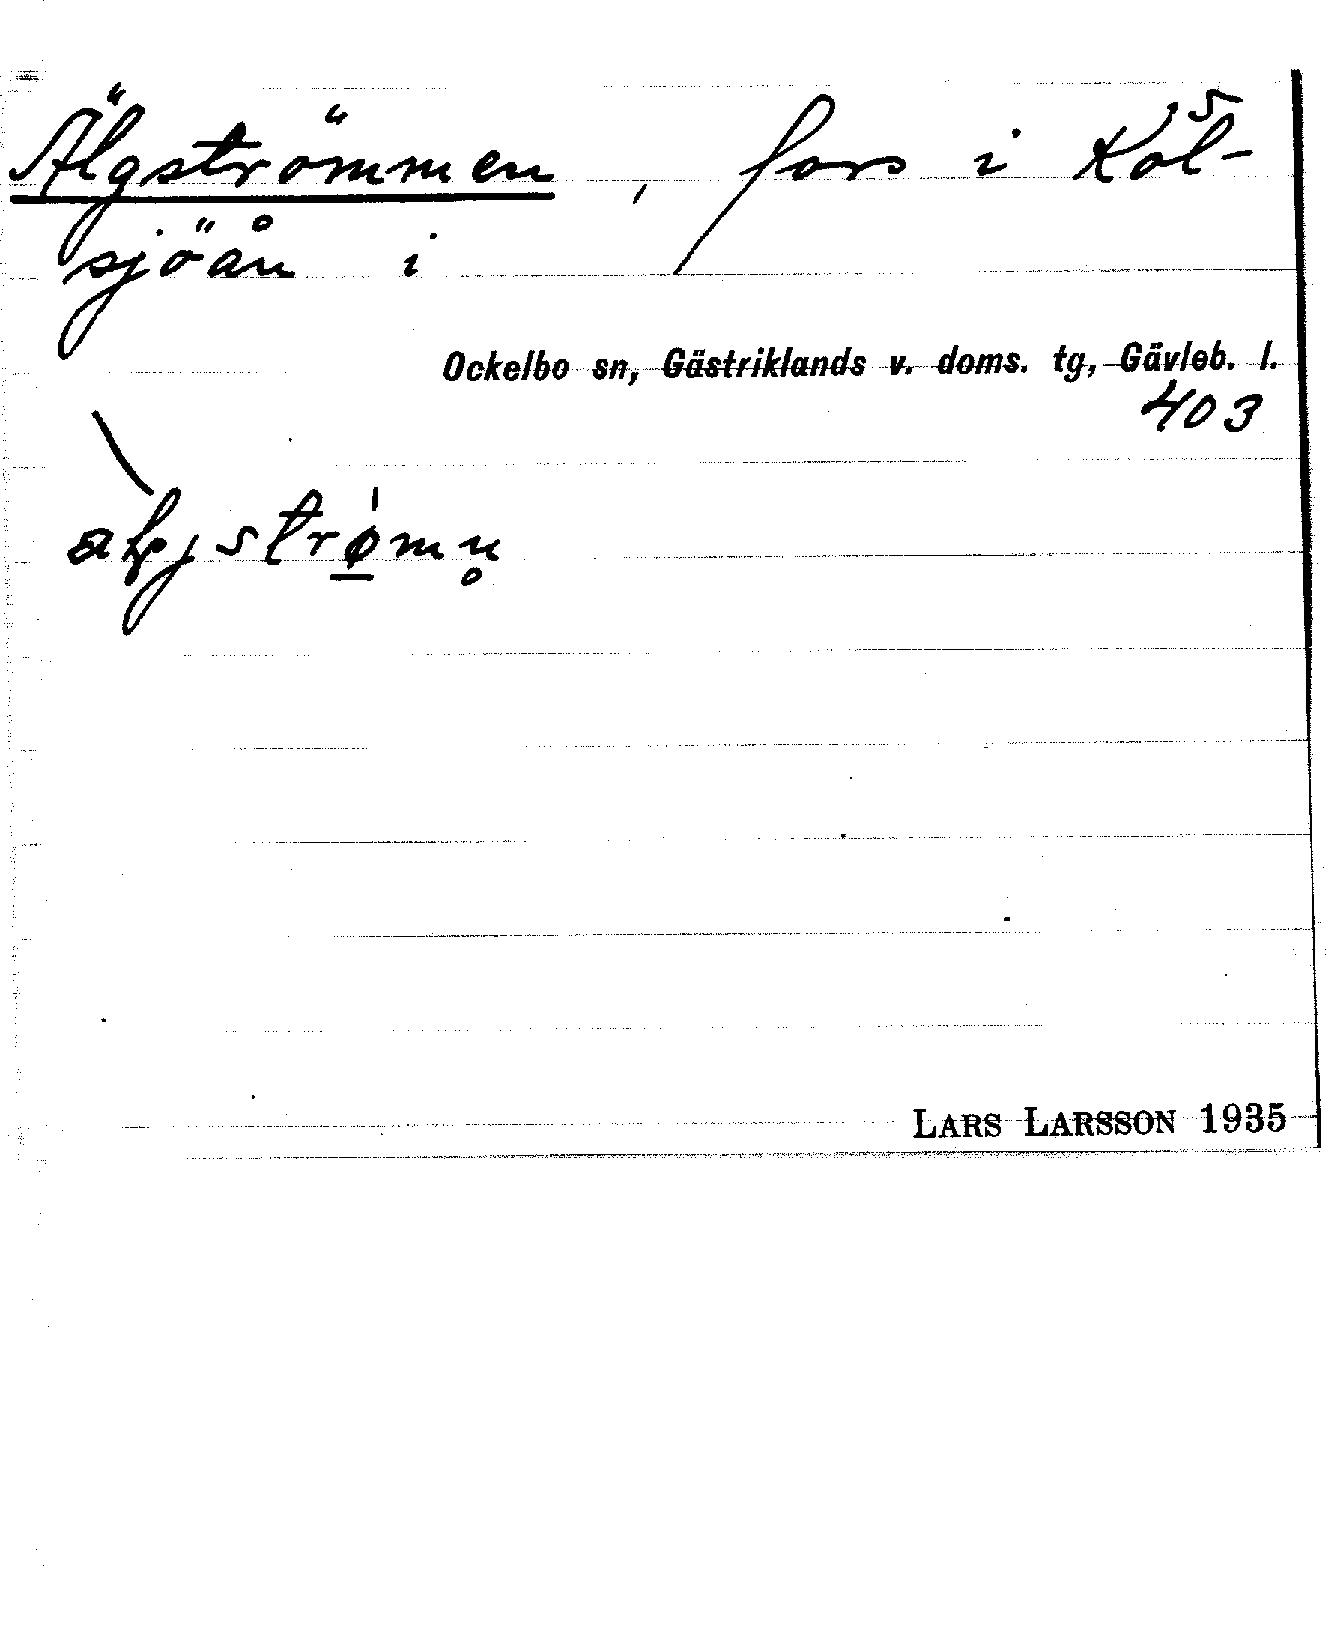 Älgströmmen, fors i Köl-
sjöån i
Ockelbo sn, Gästriklands v. doms. tg, Gävleb. l.
403
LARS LARSSON 1935